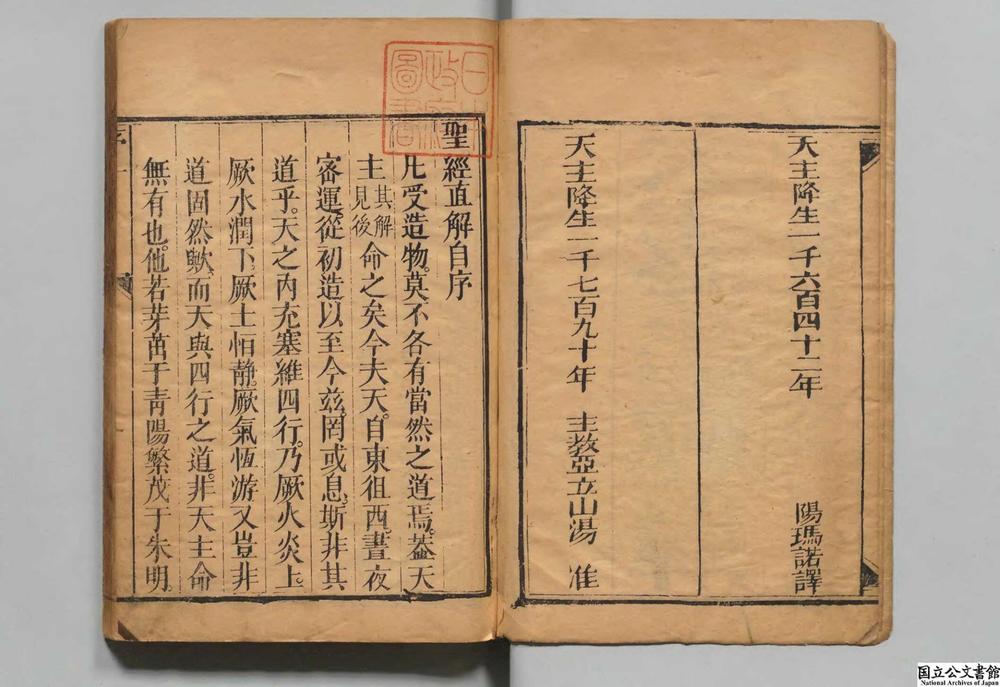 天主降生一千六百四十二年 陽瑪諾譯
天主降生一千七百九十年 主教亞立山湯 准
聖經直解自序
凡受造物。莫不各有當然之道焉。葢天
主其解見後命之矣今夫天。自東徂西。晝夜
密運。從初造以至今兹。罔或息。斯非其
道乎。天之內充塞維四行。乃厥火炎上。
厥水潤下。厥土恒靜。厥氣恆游又豈非
道固然歟。而天與四行之道。非天主命
無有也。他若芽萬于青陽繁茂于朱明
日本政府圖書
国立公文書館
National Archives of Japan